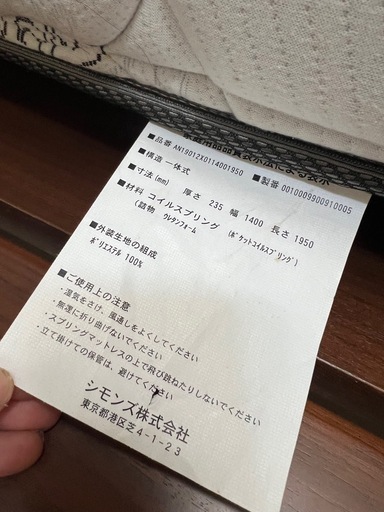 家庭用品品質表示法による表示
■品番 AN19012X0114001950
■構造 一体式 ■製番 0010099900910005
■寸法(mm) 厚さ 235 幅 1400 長さ 1950
■材料 コイルスプリング (ポケットコイルスプリング)
(詰物 ウレタンフォーム
■外装生地の組成
ポリエステル 100%
■ご使用上の注意
・湿気をさけ、風通しをよくしてください
・無理に折り曲げないでください
・スプリングマットレスの上で飛び跳ねたりしないでください
・立て掛けての保管は、避けてください
シモンズ株式会社
東京都港区芝4-1-23